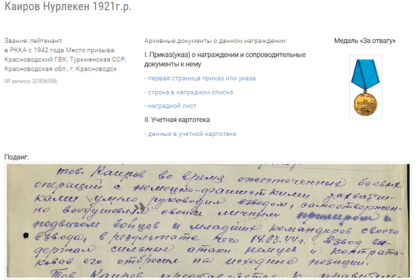 Каиров Нурлекен 1921г.р.
Звание: лейтенант
в РККА с 1942 года Место призыва:
Красноводский ГВК, Туркменская ССР,
Красноводская обл., г. Красноводск
№ записи: 32906596
Архивные документы о данном награждении:
I. Приказ(указ) о награждении и сопроводительные
документы к нему
- первая страница приказ или указа
- строка в наградном списке
- наградной лист
II. Учетная картотека
- данные в учетной картотеке
Медаль «За отвагу»
Подвиг:
тов. Каиров во время ожесточенных боевых
операций с немецко-фашисткими захватчи-
ками умело руководил взводом, самоотвержен-
но воодушевляя своим личным примером и
подвигом бойцов и младших командиров своего
взвода, в результате чего 14.03.44г. взвод вы-
держал сильные атаки немцев и контратa-
ковав его отбросил на исходную позицию.
Тов. Каиров